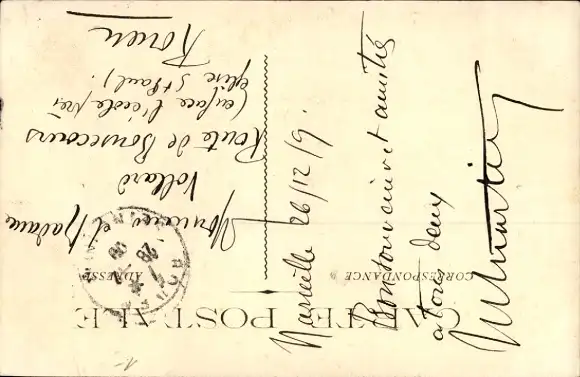 CARTE POSTALE
CORRESPONDANCE
ADRESSE
Marseille 26/12/9.
Bon souvenir et amitiés
a tous deux
Martin
Monsieur et Madame
Vollard
Route de Bonsecours
(en face l'école près
église St Paul).
Rouen
ROUEN
28
12
09